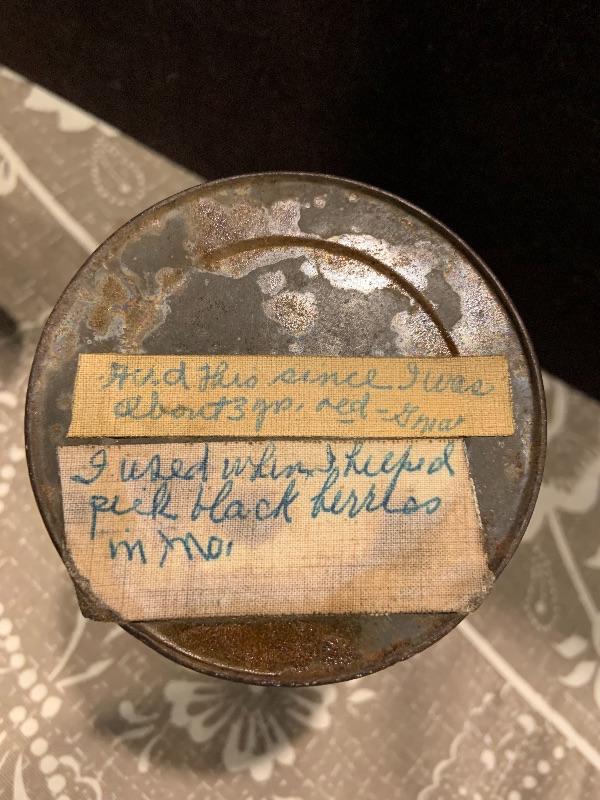 Had this since I was
about 3 yr. old - Gma
I used when I helped
pick black berries
in Mo.